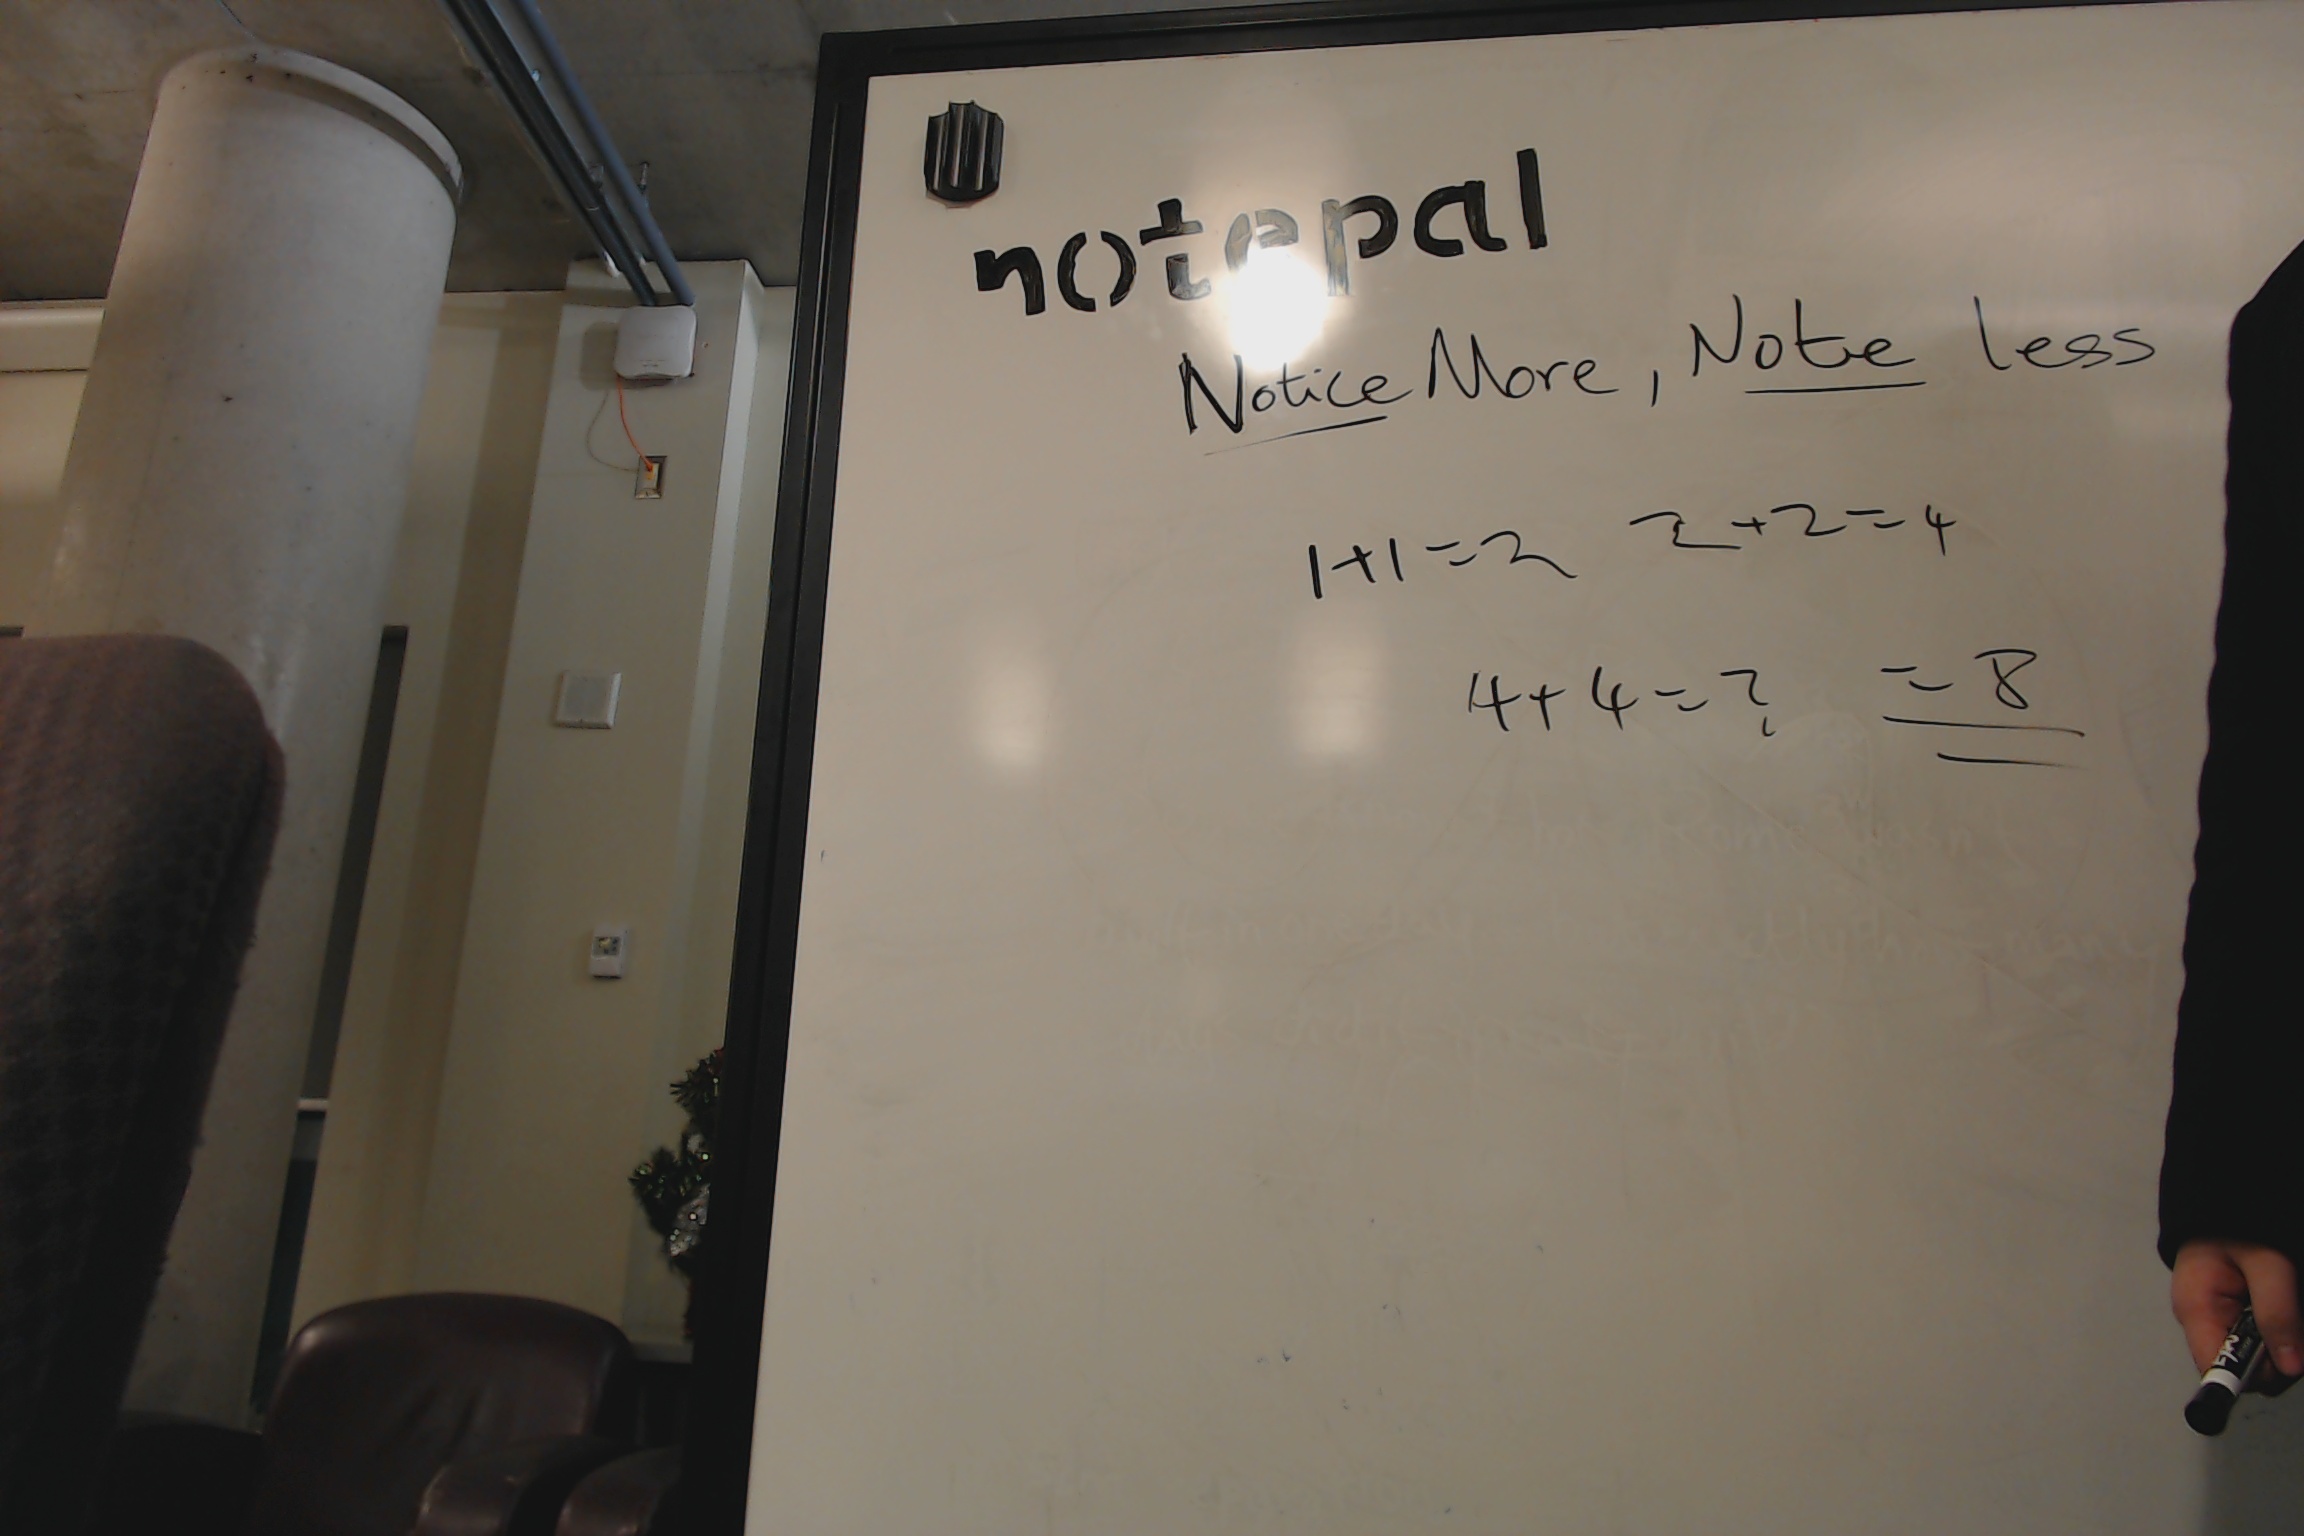 notepal
Notice More, Note less
1+1=2 2+2=4
4+4=? =8
EXPO